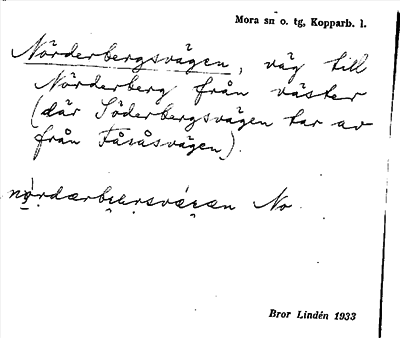 Mora sn o. tg, Kopparb. l.
Nörderbergsvägen, väg till
Nörderberg från väster
(där Söderbergsvägen tar av
från Fåsåsvägen).
No
Bror Lindén 1933